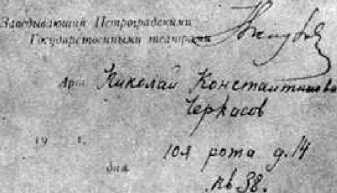 Заведывающий Петроградскими
Государственными театрами
Арт. Николай Константинович
Черкасов
19 г.
10я рота д. 14
дня
кв 38.